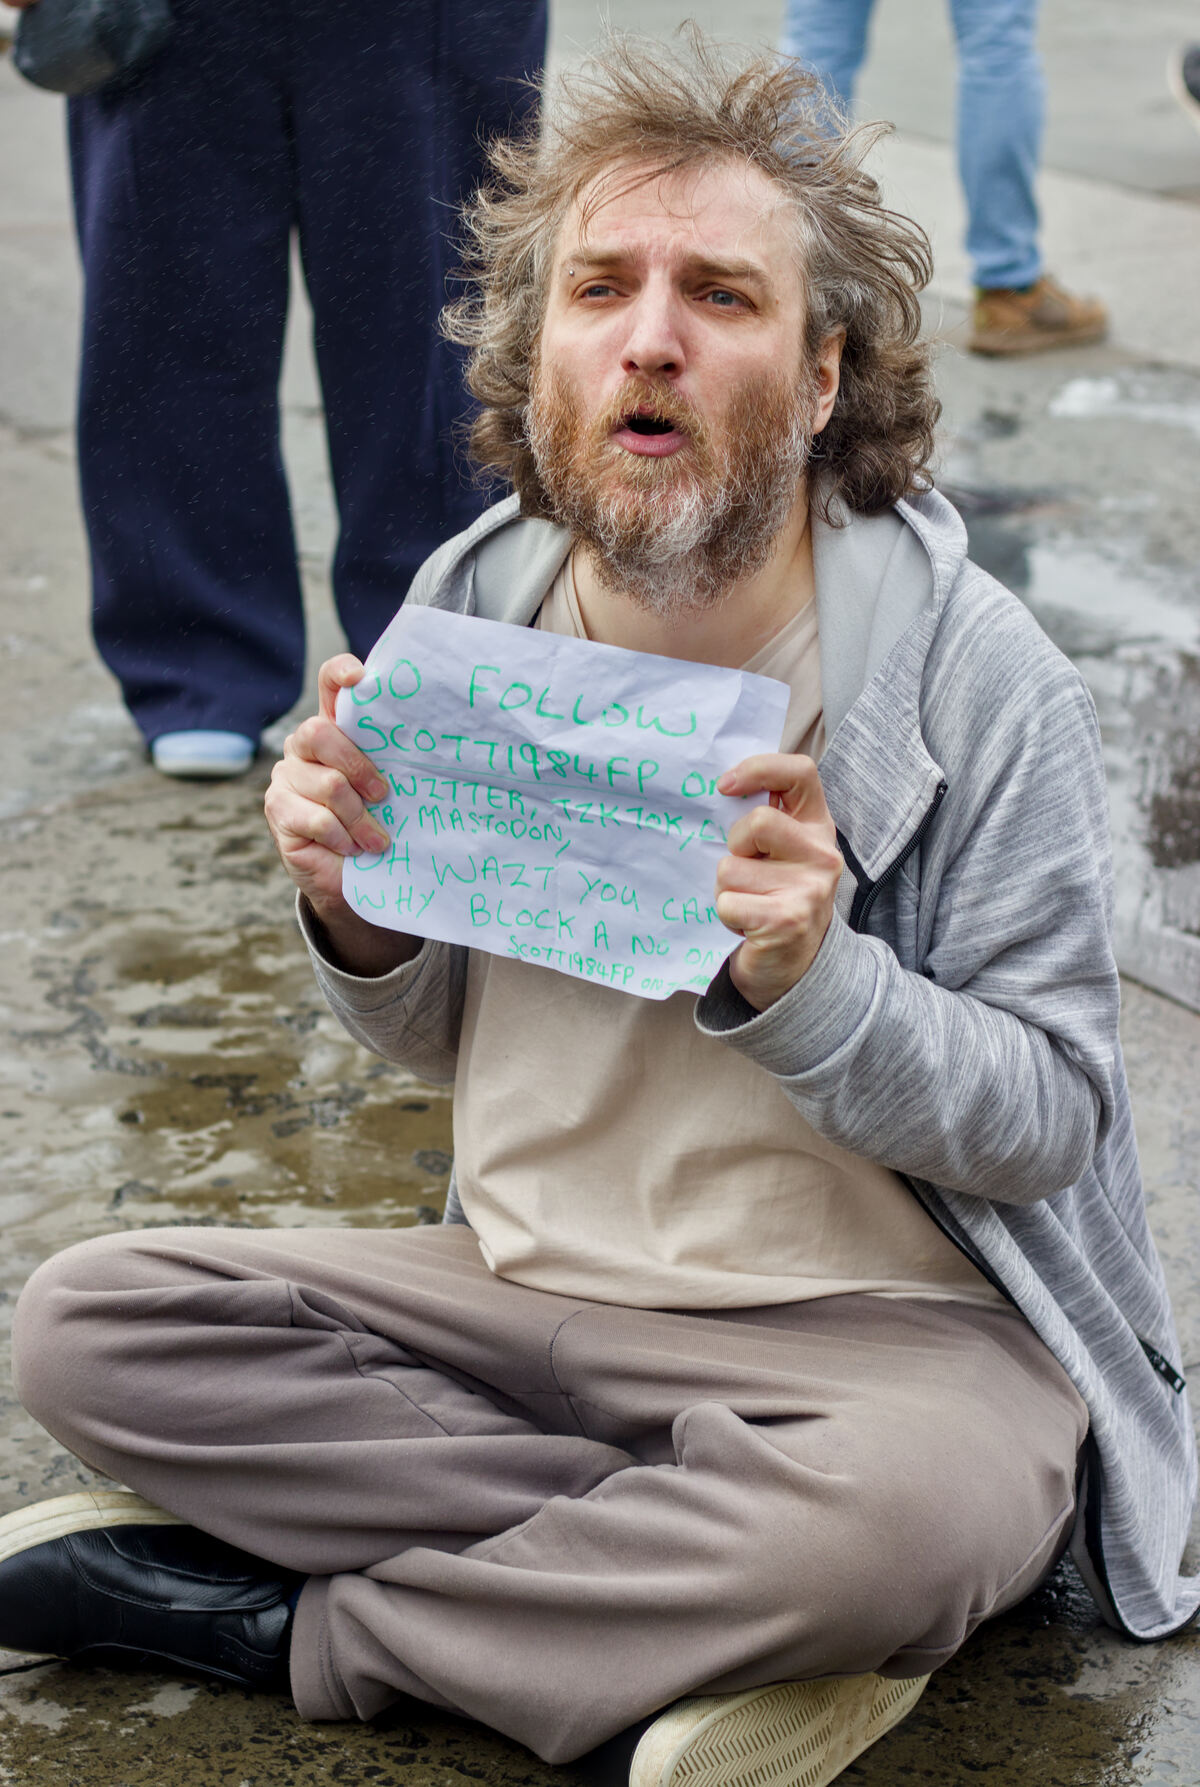 GO FOLLOW
SCOTT1984FP ON
TWITTER, TIKTOK,
MASTODON,
OH WAIT YOU CAN
WHY BLOCK A NO
SCOTT1984FP ON